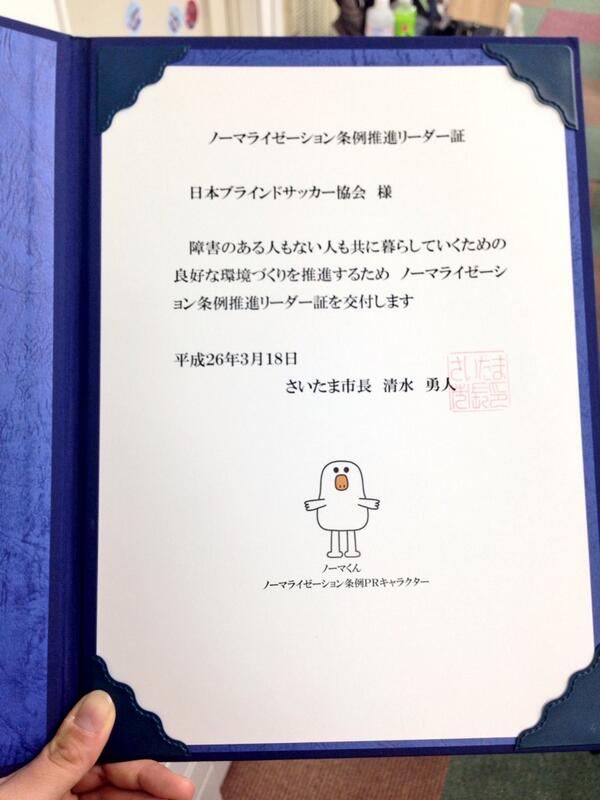 ノーマライゼーション条例推進リーダー証
日本ブラインドサッカー協会 様
障害のある人もない人も共に暮らしていくための
良好な環境づくりを推進するため ノーマライゼーシ
ョン条例推進リーダー証を交付します
平成26年3月18日
さいたま市長 清水 勇人
さいたま
市長印
ノーマくん
ノーマライゼーション条例PRキャラクター